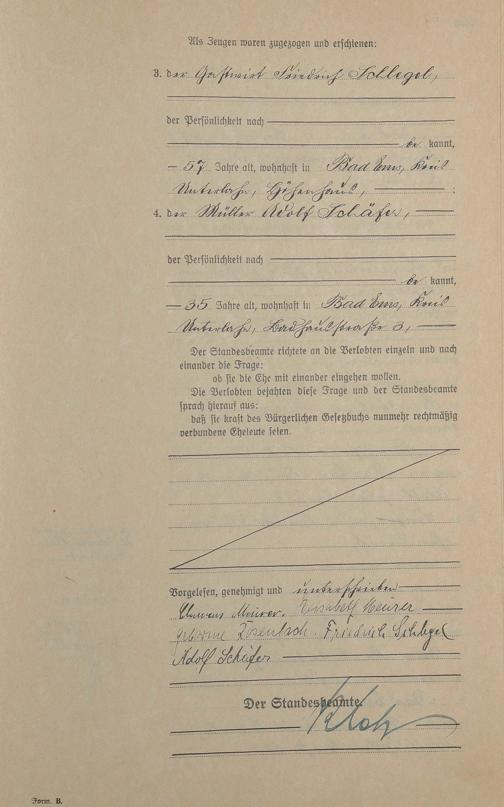 Als Zeugen waren zugezogen und erschienen:
3. der Gastwirt Friedrich Schlegel,
der Persönlichkeit nach
be kannt,
57 Jahre alt, wohnhaft in Bad Ems, Kreis
Unterlahn, Höhenhaus, ;
4. der Müller Adolf Schäfer,
der Persönlichkeit nach
be kannt,
35 Jahre alt, wohnhaft in Bad Ems, Kreis
Unterlahn, Badhausstraße 3,
Der Standesbeamte richtete an die Verlobten einzeln und nach
einander die Frage:
ob sie die Ehe mit einander eingehen wollen.
Die Verlobten bejahten diese Frage und der Standesbeamte
sprach hierauf aus:
daß sie kraft des Bürgerlichen Gesetzbuchs nunmehr rechtmäßig
verbundene Eheleute seien.
Vorgelesen, genehmigt und unterschrieben
Meurer. Elisabeth Meurer
geborene Friedrich Schlegel
Adolf Schäfer
Der Standesbeamte.
Form. B.